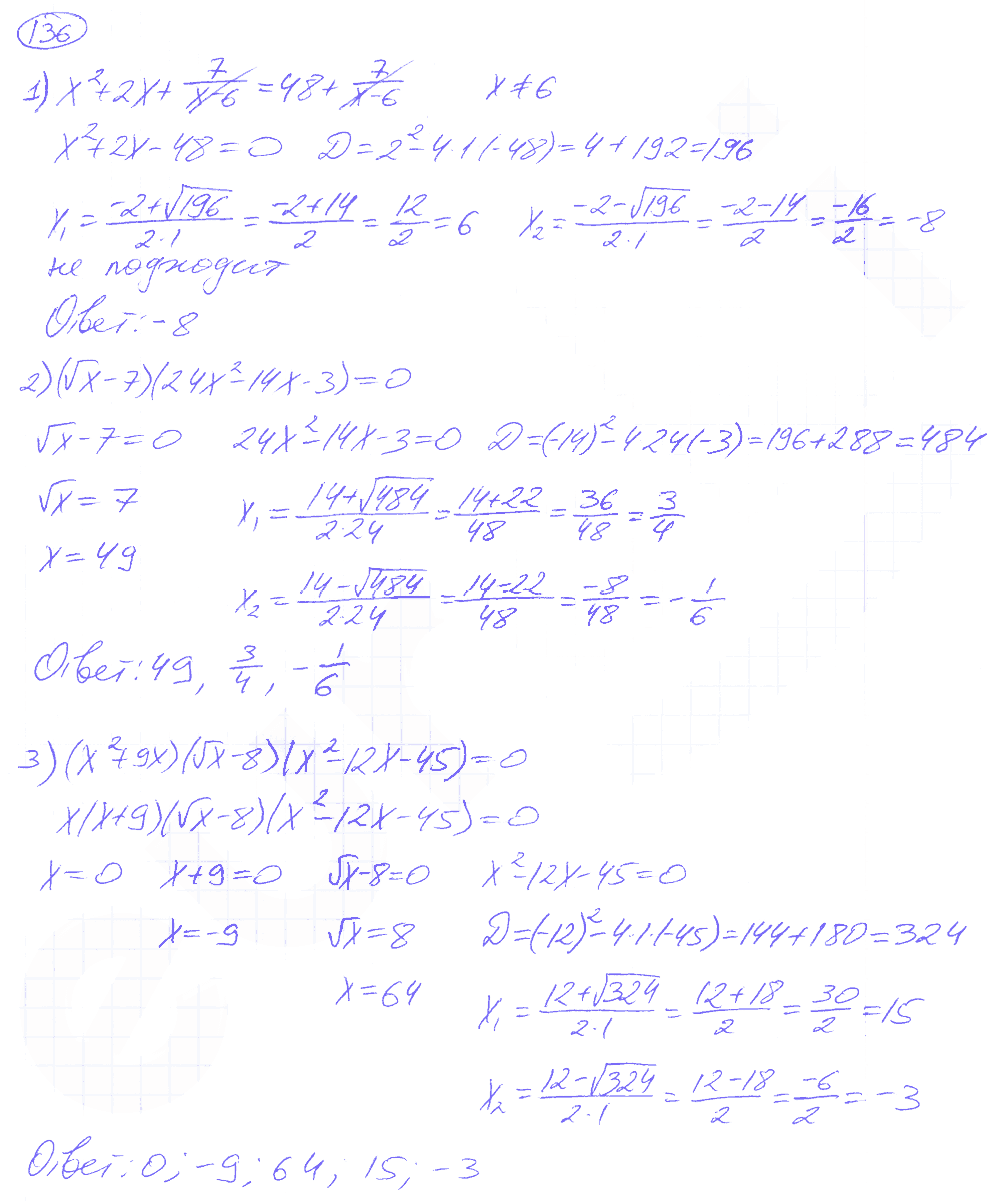 136
1) x²+2x+7/(x-6)=48+7/(x-6) x≠6
x²+2x-48=0 D=2²-4·1(-48)=4+192=196
x₁=(-2+√196)/(2·1)=(-2+14)/2=12/2=6 x₂=(-2-√196)/(2·1)=(-2-14)/2=-16/2=-8
не подходит
Ответ: -8
2) (√x-7)(24x²-14x-3)=0
√x-7=0 24x²-14x-3=0 D=(-14)²-4·24(-3)=196+288=484
√x=7 x₁=(14+√484)/(2·24)=(14+22)/48=36/48=3/4
x=49
x₂=(14-√484)/(2·24)=(14-22)/48=-8/48=-1/6
Ответ: 49, 3/4, -1/6
3) (x²+9x)(√x-8)(x²-12x-45)=0
x(x+9)(√x-8)(x²-12x-45)=0
x=0 x+9=0 √x-8=0 x²-12x-45=0
x=-9 √x=8 D=(-12)²-4·1·(-45)=144+180=324
x=64 x₁=(12+√324)/(2·1)=(12+18)/2=30/2=15
x₂=(12-√324)/(2·1)=(12-18)/2=-6/2=-3
Ответ: 0; -9; 64; 15; -3